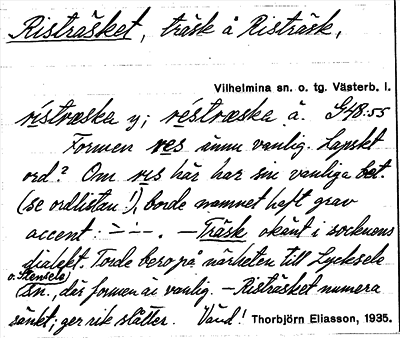 Risträsket, träsk å Risträsk,
Vilhelmina sn. o. tg. Västerb. l.
rístræska y; réstræska ä. G48:55
Formen res ännu vanlig. Lapskt
ord? Om ris här har sin vanliga bet.
(se ordlistan!), borde namnet haft grav
accent: – Träsk okänt i socknens
dialekt. Torde bero på närheten till Lycksele
o. Stensele
sn., där formen är vanlig. – Risträsket numera
sänkt; ger rik slåtter. Vänd! Thorbjörn Eliasson, 1935.